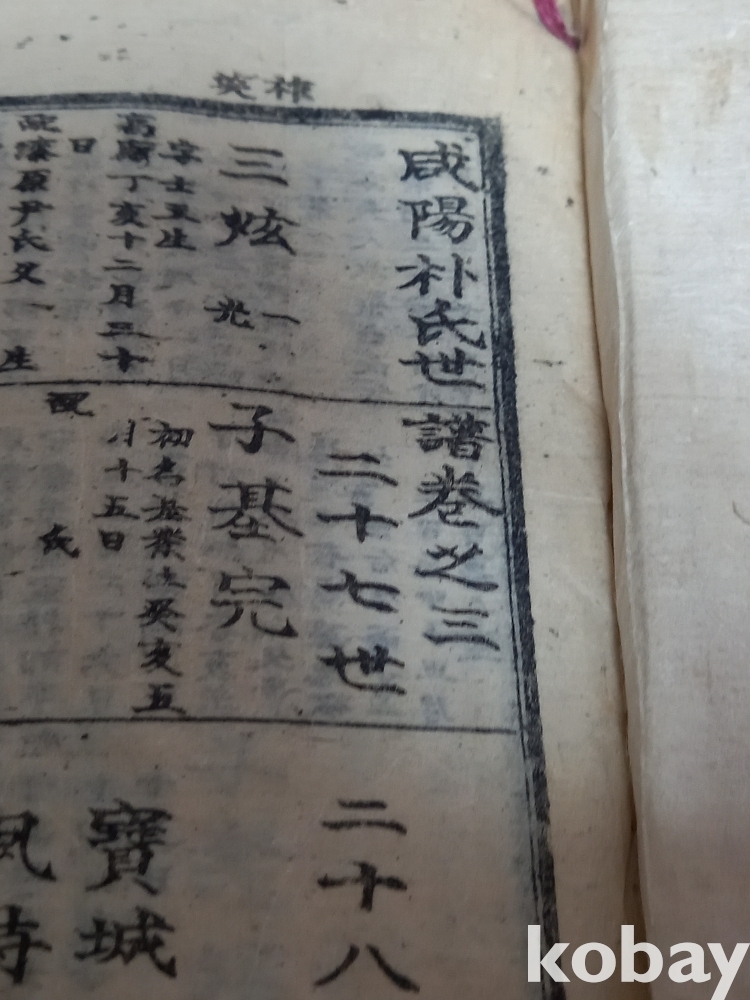 咸陽朴氏世譜卷之三
三炫
一
字士五生
丁亥十二月三十
日
原尹氏父一
生
二十七世
子基完
初名基業生癸亥五
月十五日
配
氏
二十八
寶城
kobay